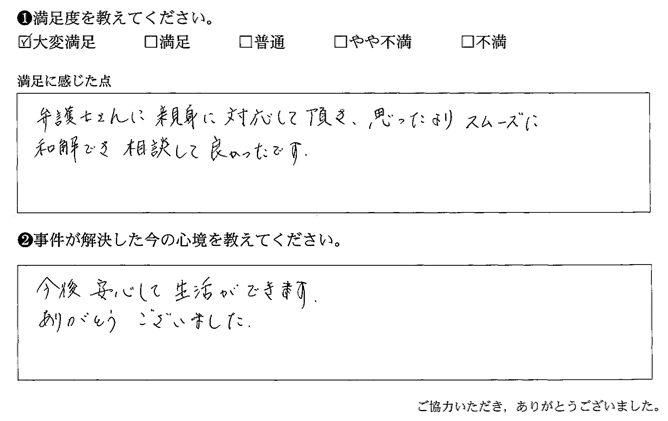 ❶満足度を教えてください。
☑大変満足 □満足 □普通 □やや不満 □不満
満足に感じた点
弁護士さんに親身に対応して頂き、思ったよりスムーズに
和解でき相談して良かったです.
❷事件が解決した今の心境を教えてください。
今後安心して生活ができます.
ありがとうございました.
ご協力いただき，ありがとうございました。